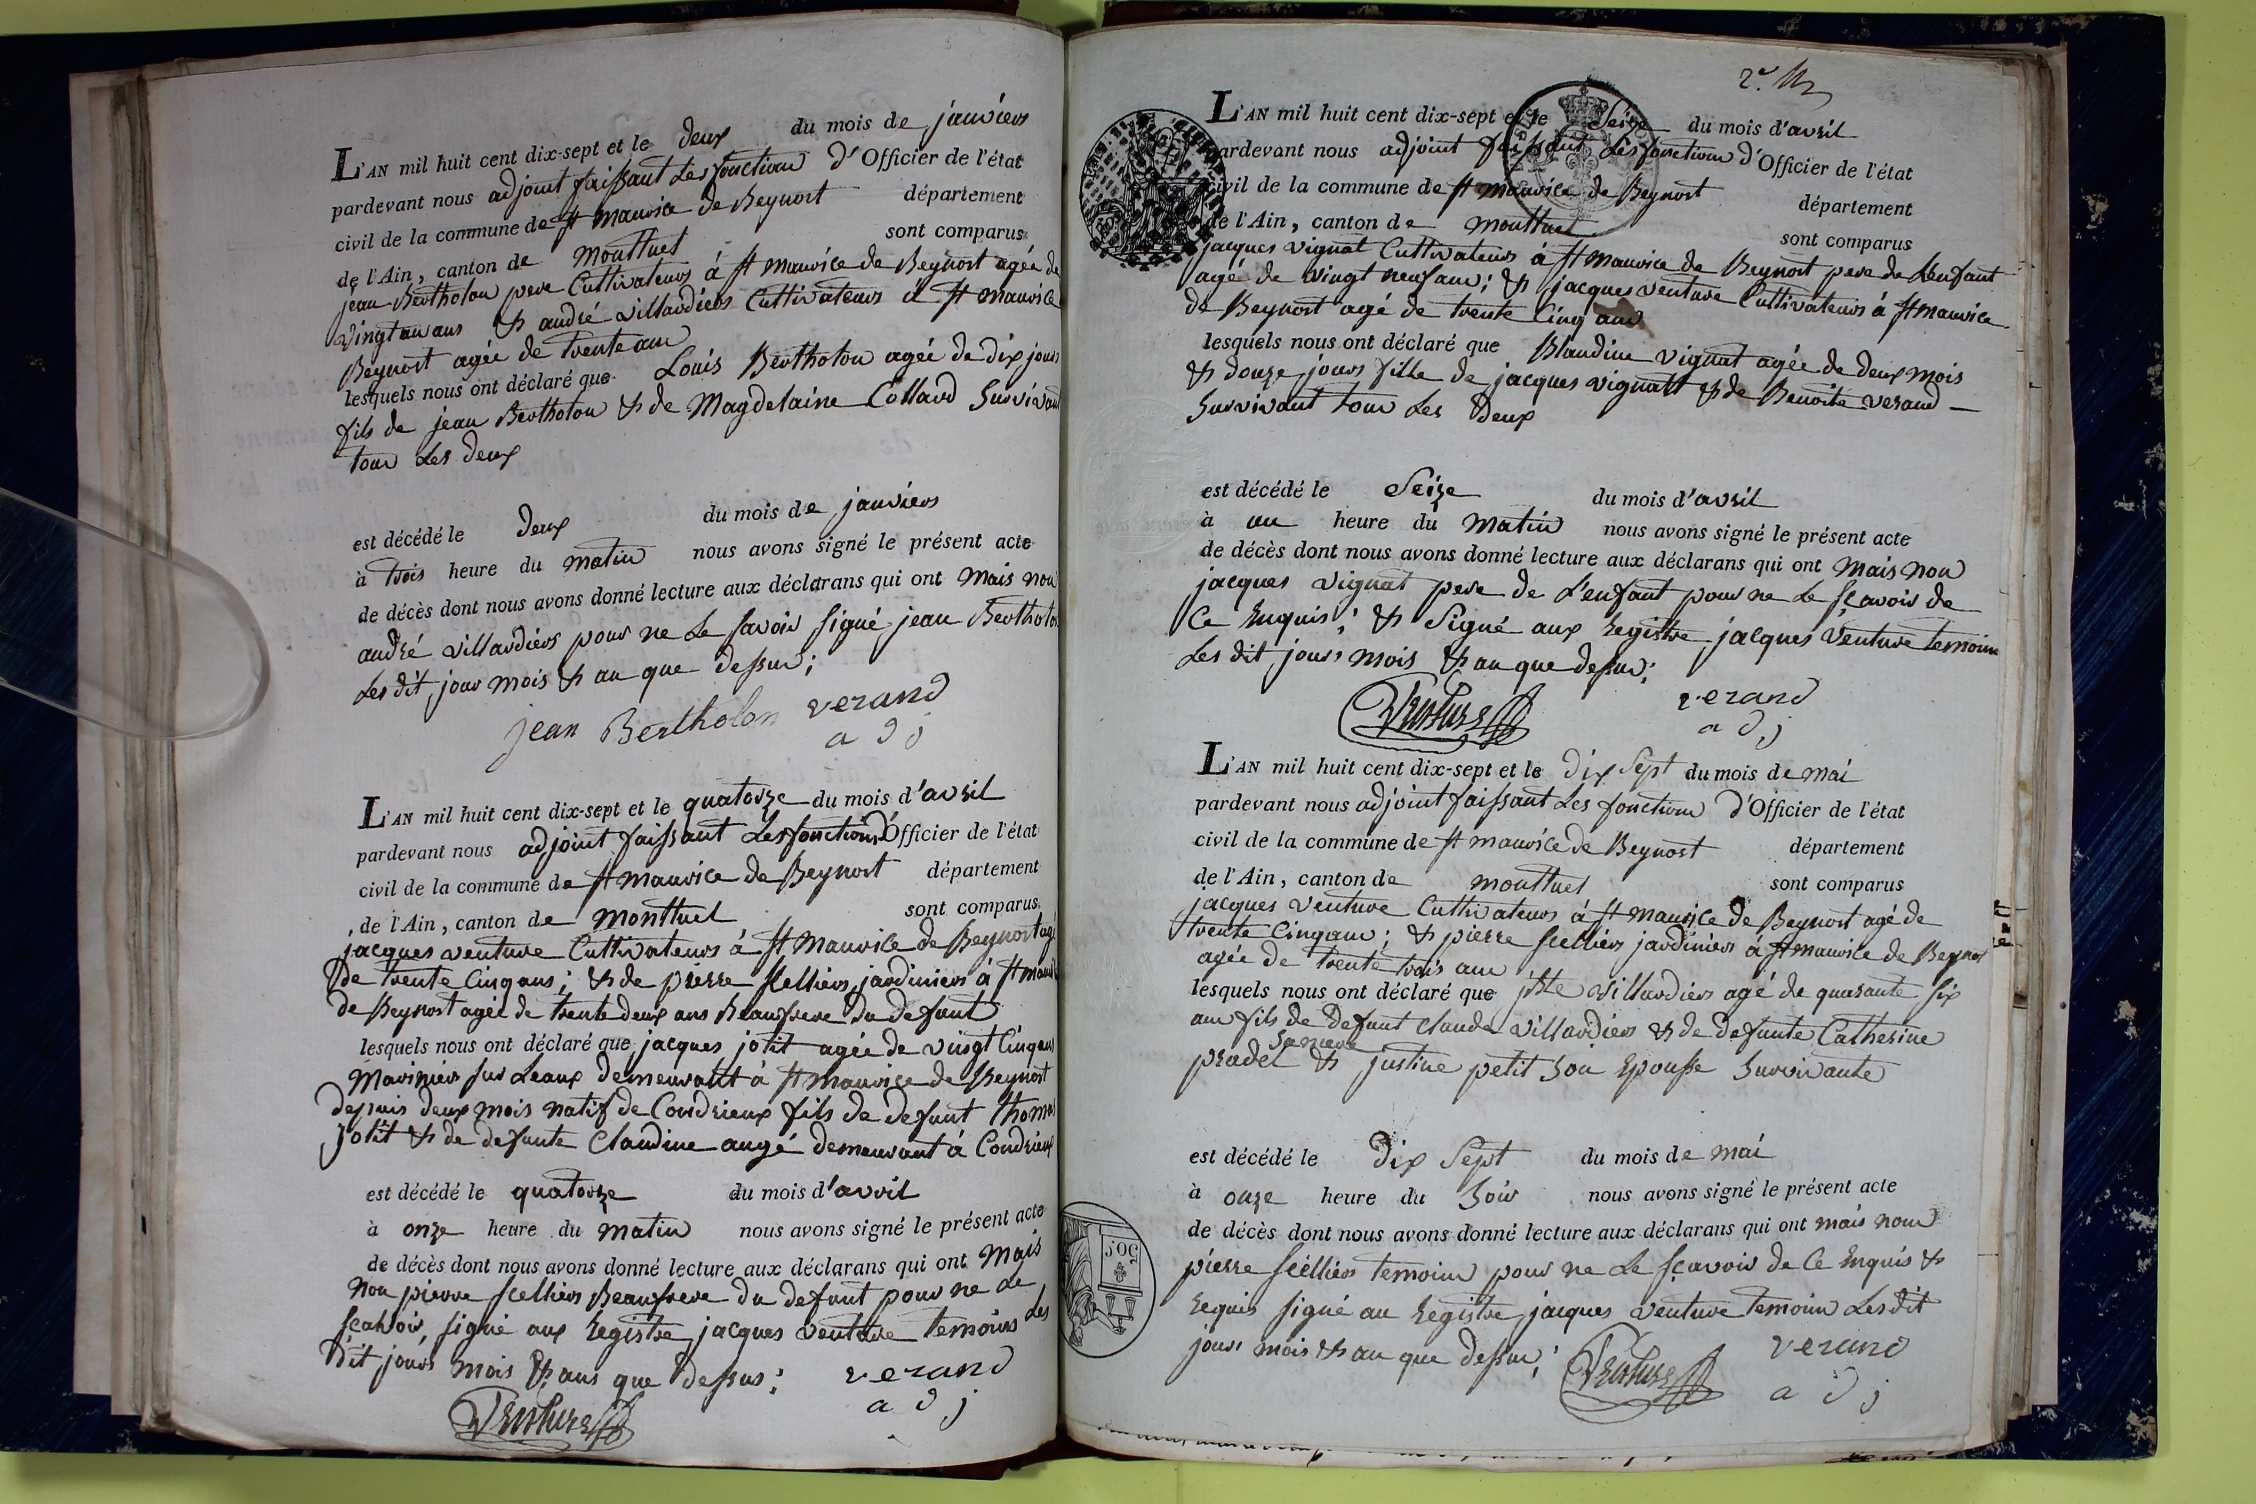 L'AN mil huit cent dix-sept et le deux du mois de janviers
pardevant nous adjoint faissant Les fonction d'Officier de l'état
civil de la commune de st mauvice de Beynost département
de l'Ain, canton de montluel sont comparus
jean Bertholon pere Cultivateurs á st mauvice de Beynost agée de
vingt un ans & andré villardiers Cultivateurs á st mauvice
Beynost agée de trente ans
lesquels nous ont déclaré que Louis Bertholon agée de dix jours
fils de jean Bertholon & de Magdelaine Collard Survivant
tous Les deux
est décédé le deux du mois de janviers
à trois heure du matin nous avons signé le présent acte
de décès dont nous avons donné lecture aux déclarans qui ont mais non
andré villardiers pour ne Le savoir signé jean Bertholon
Les dit jour mois & an que dessus;
jean Bertholon verand
adj
L'AN mil huit cent dix-sept et le quatorze du mois d'avril
pardevant nous adjoint faissant Les fonction d'Officier de l'état
civil de la commune de st mauvice de Beynost département
de l'Ain, canton de montluel sont comparus
jacques venture Cultivateurs á st mauvice de Beynost agé
de trente Cinq ans; & de pierre scelliers jardiniers á st mauvice
de Beynost agée de trente deux ans Beaufrere du defunt
lesquels nous ont déclaré que jacques jotit agée de vingt Cinq ans
Mariniers sur Leaux demeurant á st mauvice de Beynost
depuis deux mois natif de Condrieux fils de defunt thomas
jotit & de defunte Claudine augé demeurant á Condrieux
est décédé le quatorze du mois d'avril
à onze heure du matin nous avons signé le présent acte
de décès dont nous avons donné lecture aux déclarans qui ont mais
non pierre scelliers Beaufrere du defunt pour ne Le
sçavoir, signé aux Registre jacques venture temoins Les
dit jours mois & ans que dessus; verand
Venture adj
2e
L'AN mil huit cent dix-sept et le Seize du mois d'avril
pardevant nous adjoint faissant Les fonction d'Officier de l'état
civil de la commune de st mauvice de Beynost département
de l'Ain, canton de montluel sont comparus
jacques vignat Cultivateurs á st mauvice de Beynost pere de L'enfant
agé de vingt neuf ans; & jacques venture Cultivateurs á st mauvice
de Beynost agé de trente Cinq ans
lesquels nous ont déclaré que Blandine vignat agée de deux mois
& douze jours fille de jacques vignatt & de Benoite verand
Survivant tous Les Deux
est décédé le Seize du mois d'avril
à un heure du Matin nous avons signé le présent acte
de décès dont nous avons donné lecture aux déclarans qui ont mais non
jacques vignat pere de L'enfant pour ne Le sçavoir de
Ce Enquis; & Signé aux Registre jacques venture temoins
Les dit jours mois & an que dessus;
Venture verand
adj
L'AN mil huit cent dix-sept et le dix Sept du mois de mai
pardevant nous adjoint faissant Les fonction d'Officier de l'état
civil de la commune de st mauvice de Beynost département
de l'Ain, canton de montluel sont comparus
jacques venture Cultivateurs á st mauvice de Beynost agé de
trente Cinq ans; & pierre scelliers jardiniers á st mauvice de Beynost
agée de trente trois ans
lesquels nous ont déclaré que villardiers agé de quarante six
ans fils de defunt claude villardiers & de defunte Catherine
pradel sa mere & justine petit Son Epousse Survivante
est décédé le dix Sept du mois de mai
à onze heure du Soir nous avons signé le présent acte
de décès dont nous avons donné lecture aux déclarans qui ont mais non
pierre scelliers temoins pour ne Le sçavoir de Ce Enquis &
Requis signé au Registre jacques venture temoins Les dit
jours mois & an que dessus; Venture verand
adj
50 C